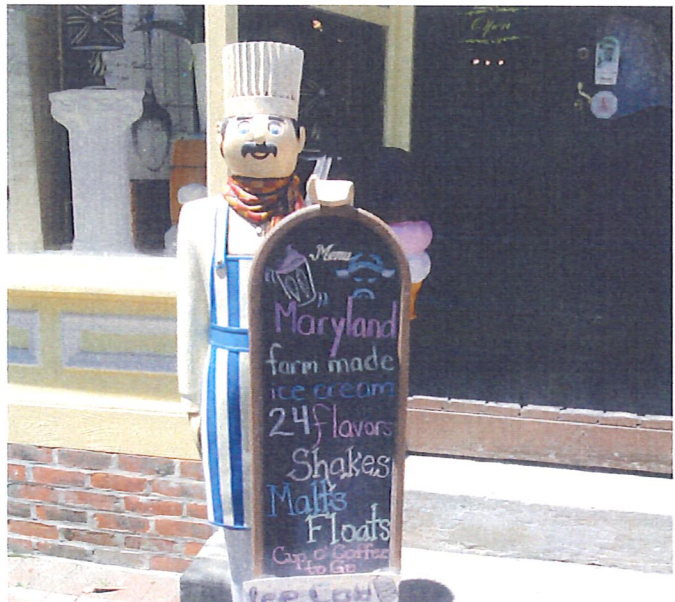 Menu
"100"
Maryland
farm made
ice cream
24 flavors
Shakes
Malts
Floats
Cup o' Coffee
to Go